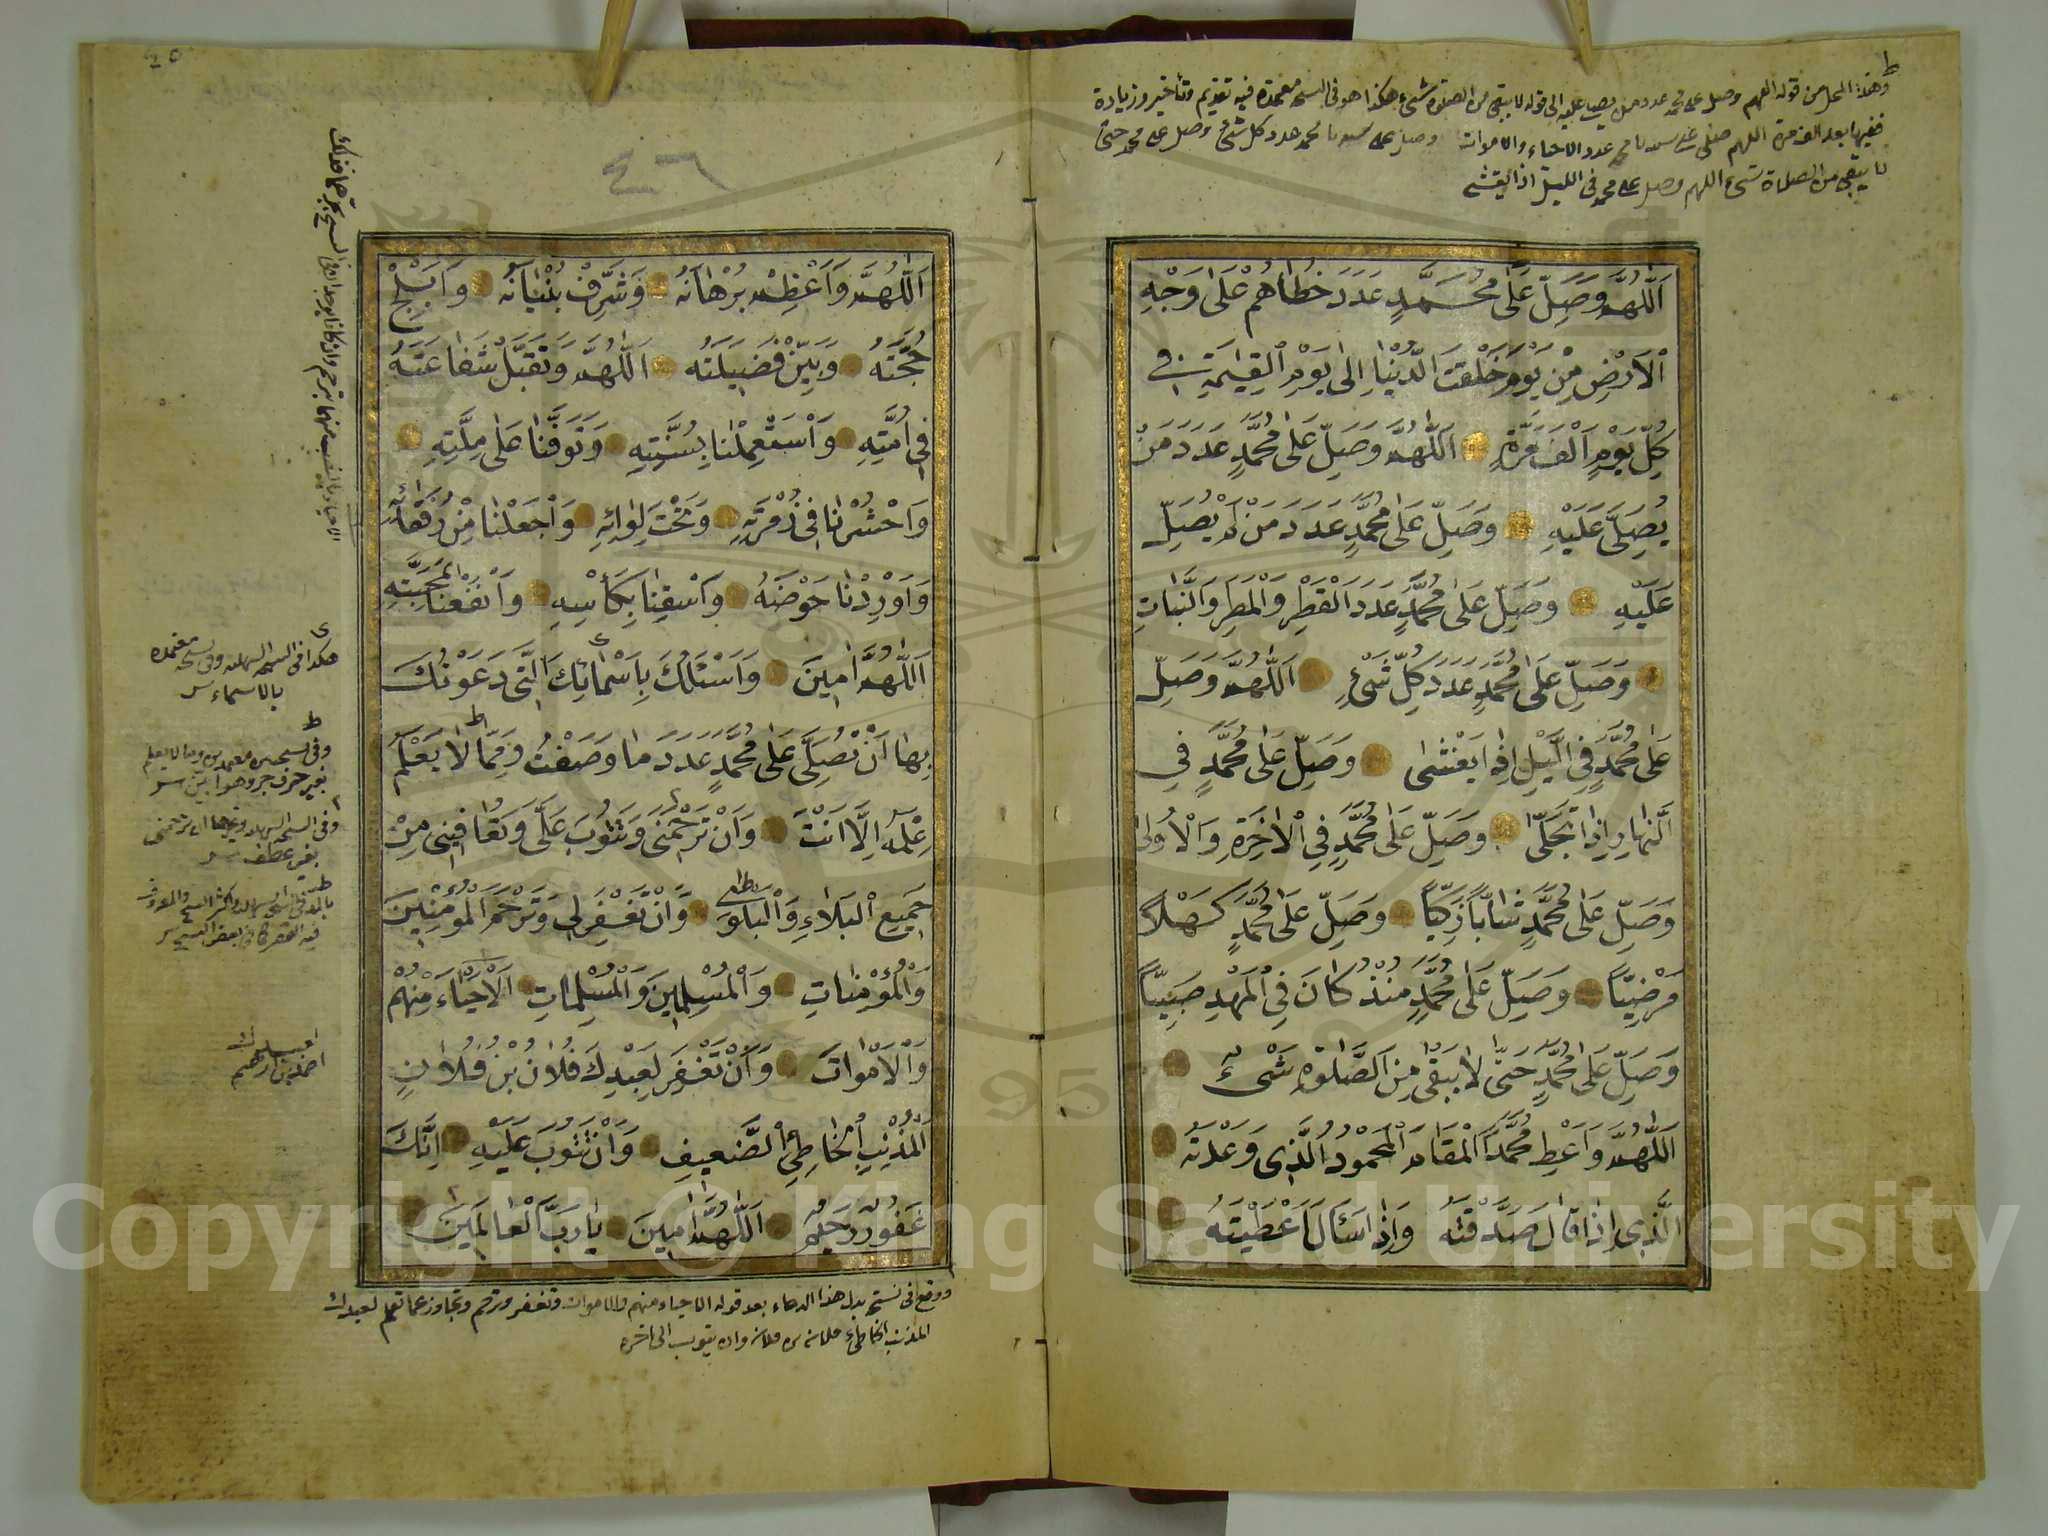 وهذا المحل من قوله اللهم وصل على محمد عدد من يصلى عليه الى قوله لا يبقى من الصلوة شئ هكذا هو فى النسخ معتمدة فيه تقديم وتأخير وزيادة
ففيها بعد الف مرة اللهم صل على سيدنا محمد عدد الاحياء والاموات وصل على سيدنا محمد عدد كل شئ وصل على محمد حتى
لا يبقى من الصلاة شئ اللهم وصل على محمد فى الليل اذا يغشى
اَللّٰهُمَّ وَصَلِّ عَلٰى مُحَمَّدٍ عَدَدَ خُطَاهُمْ عَلٰى وَجْهِ
الْاَرْضِ مِنْ يَوْمِ خَلَقْتَ الدُّنْيَا اِلٰى يَوْمِ الْقِيٰمَةِ فِى
كُلِّ يَوْمٍ اَلْفَ مَرَّةٍ اَللّٰهُمَّ وَصَلِّ عَلٰى مُحَمَّدٍ عَدَدَ مَنْ
يُصَلِّى عَلَيْهِ وَصَلِّ عَلٰى مُحَمَّدٍ عَدَدَ مَنْ لَمْ يُصَلِّ
عَلَيْهِ وَصَلِّ عَلٰى مُحَمَّدٍ عَدَدَ الْقَطْرِ وَالْمَطَرِ وَالنَّبَاتِ
وَصَلِّ عَلٰى مُحَمَّدٍ عَدَدَ كُلِّ شَىْءٍ اَللّٰهُمَّ وَصَلِّ
عَلٰى مُحَمَّدٍ فِى الَّيْلِ اِذَا يَغْشٰى وَصَلِّ عَلٰى مُحَمَّدٍ فِى
النَّهَارِ اِذَا تَجَلّٰى وَصَلِّ عَلٰى مُحَمَّدٍ فِى الْاٰخِرَةِ وَالْاُولٰى
وَصَلِّ عَلٰى مُحَمَّدٍ شَابًّا زَكِيًّا وَصَلِّ عَلٰى مُحَمَّدٍ كَهْلاً
مَرْضِيًّا وَصَلِّ عَلٰى مُحَمَّدٍ مُنْذُ كَانَ فِى الْمَهْدِ صَبِيًّا
وَصَلِّ عَلٰى مُحَمَّدٍ حَتّٰى لَا يَبْقٰى مِنَ الصَّلٰوةِ شَىْءٌ
اَللّٰهُمَّ وَاَعْطِ مُحَمَّدًا الْمَقَامَ الْمَحْمُودَ الَّذِى وَعَدْتَهُ
الَّذِى اِذَا قَالَ صَدَّقْتَهُ وَاِذَا سَئَالَ اَعْطَيْتَهُ
٤٦
اَللّٰهُمَّ وَاَعْظِمْ بُرْهَانَهُ وَشَرِّفْ بُنْيَانَهُ وَاَبْلِجْ
حُجَّتَهُ وَبَيِّنْ فَضِيلَتَهُ اَللّٰهُمَّ وَتَقَبَّلْ شَفَاعَتَهُ
فِى اُمَّتِهِ وَاسْتَعْمِلْنَا بِسُنَّتِهِ وَتَوَفَّنَا عَلٰى مِلَّتِهِ
وَاحْشُرْنَا فِى زُمْرَتِهِ وَتَحْتَ لِوَائِهِ وَاجْعَلْنَا مِنْ رُفَقَائِهِ
وَاَوْرِدْنَا حَوْضَهُ وَاسْقِنَا بِكَأْسِهِ وَانْفَعْنَا بِمَحَبَّتِهِ
اَللّٰهُمَّ اٰمِينَ وَاَسْئَلُكَ بِاَسْمَائِكَ الَّتِى دَعَوْتُكَ
بِهَا اَنْ تُصَلِّىَ عَلٰى مُحَمَّدٍ عَدَدَ مَا وَصَفْتُ وَمِمَّا لَا يَعْلَمُ
عِلْمَهُ اِلَّا اَنْتَ وَاَنْ تَرْحَمَنِى وَتَتُوبَ عَلَىَّ وَتُعَافِيَنِى مِنْ
جَمِيعِ الْبَلَاءِ وَالْبَلْوَاءِ وَاَنْ تَغْفِرَ لِى وَتَرْحَمَ الْمُؤْمِنِينَ
وَالْمُؤْمِنَاتِ وَالْمُسْلِمِينَ وَالْمُسْلِمَاتِ الْاَحْيَاءَ مِنْهُمْ
وَالْاَمْوَاتَ وَاَنْ تَغْفِرَ لِعَبْدِكَ فُلَانِ بْنِ فُلَانٍ
الْمُذْنِبِ الْخَاطِئِ الضَّعِيفِ وَاَنْ تَتُوبَ عَلَيْهِ اِنَّكَ
غَفُورٌ رَحِيمٌ اَللّٰهُمَّ اٰمِينَ يَارَبَّ الْعَالَمِينَ
هكذا فى النسخ السهلية وفى نسخة معتمدة
بالاسماء
وفى نسختين معتمدتين وما لا يعلم
بغير حرف جر وهو ابين
وفى النسخ السهلية وغيرها ان ترحمنى
بغير عطف
ووقع فى نسخ بدل هذا الدعاء بعد قوله الاحياء منهم والاموات وتغفر وترحم وتجاوز عما تعلم لعبدك
المذنب الخاطئ فلان بن فلان وان يتوب الى اخره
Copyright © King Saud University
1957